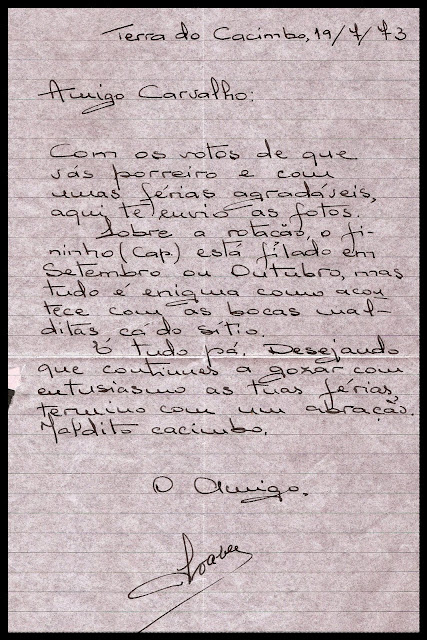 Terra do Cacimbo, 19/7/73
Amigo Carvalho:
Com os votos de que
vás porreiro e com
umas férias agradáveis,
aqui te envio as fotos.
Sobre a rotação, o fi-
ninho (Cap.) está filado em
Setembro ou Outubro, mas
tudo é enigma como acon
tece com as bocas mal-
ditas cá do sítio.
É tudo pá. Desejando
que continues a gozar com
entusiasmo as tuas férias,
termino com um abração.
Maldito cacimbo.
O Amigo.
Soares